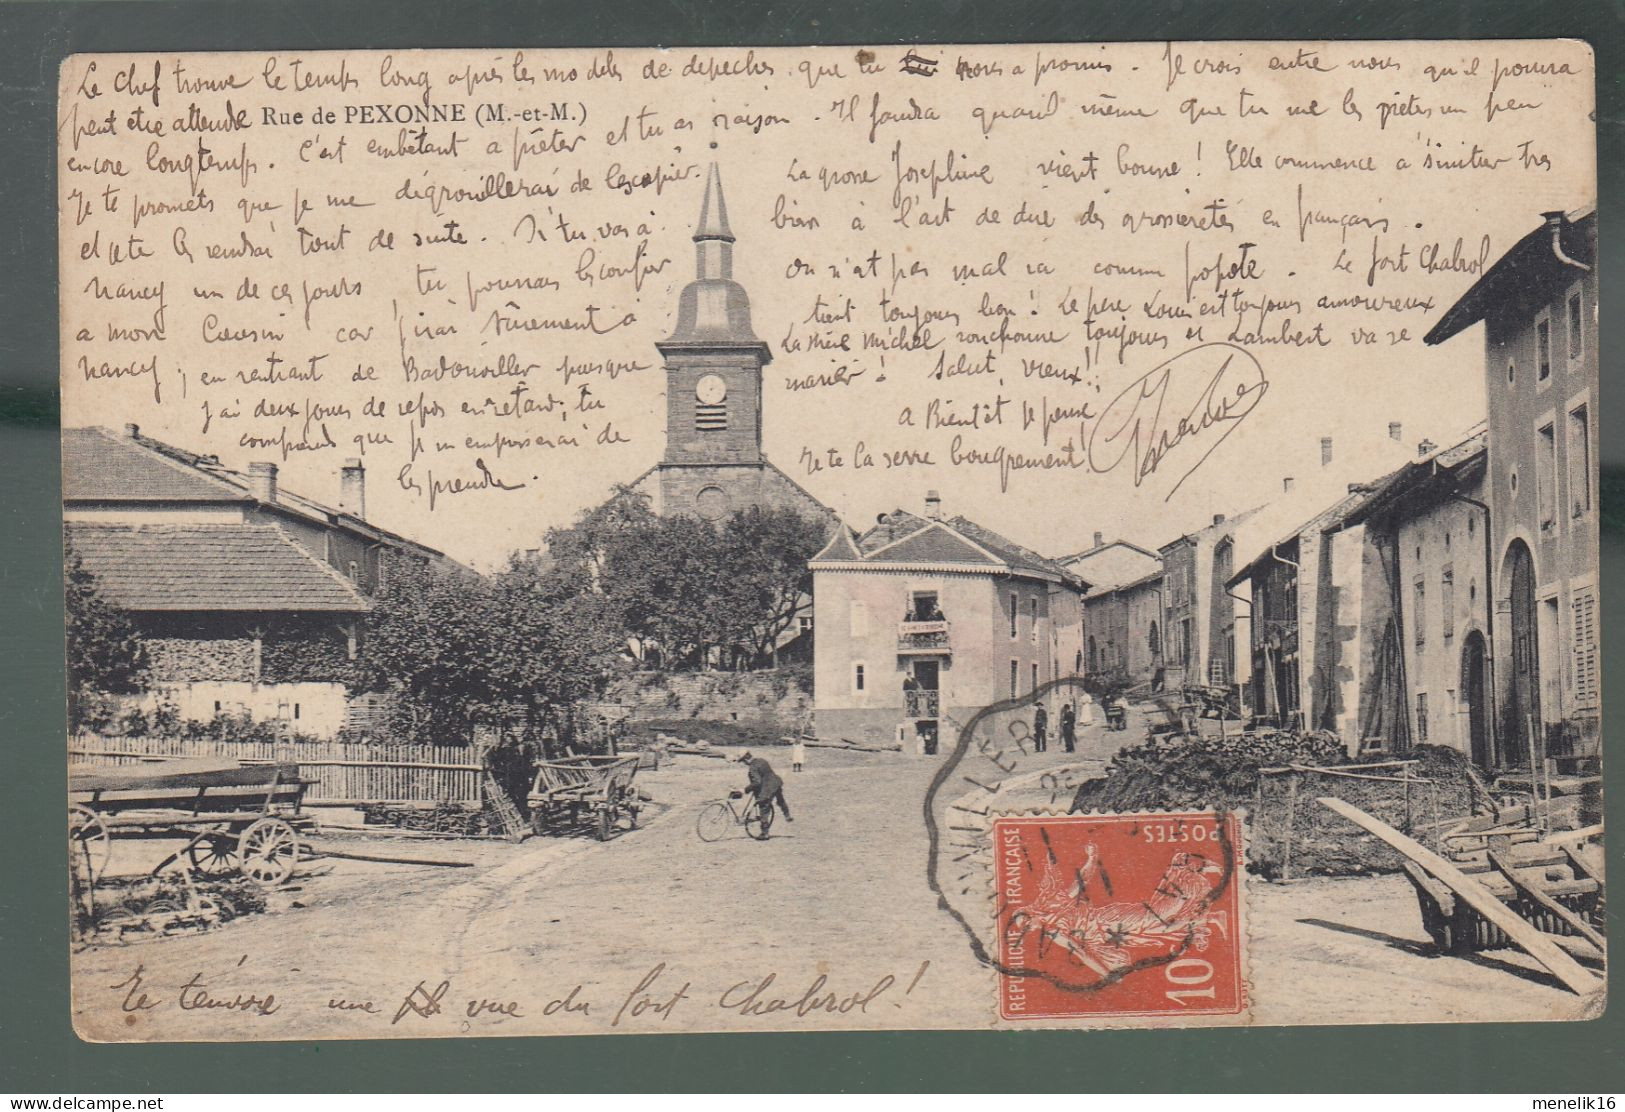 Le Chef trouve le temps long après les modèles de depeches que tu nous a promis. Je crois entre nous qu'il pourra
peut etre attendre
Rue de PEXONNE (M.-et-M.)
et tu as raison. Il faudra quand même que tu me les prêtes un peu
encore longtemps. C'est embêtant a prêter
Je te promets que je me dégrouillerai de les copier.
et je te les rendrai tout de suite. Si tu vas à
Nancy un de ces jours, tu pourrais les confier
a mon Cousin car j'irai sûrement à
Nancy, en rentrant de Badonviller puisque
j'ai deux jours de repos en retard; tu
comprends que je m'empresserai de
les prendre.
La grosse Josephine vient bonne! Elle commence à s'initier très
bien à l'art de dire des grossieretés en français.
On n'est pas mal ici comme popote. Le fort Chabrol
tient toujours bon! Le père Louis est toujours amoureux
La Mère Michel ronchonne toujours et Lambert va se
marier! Salut, vieux!
A Bientôt je pense
Je te la serre bougrement!
Je t'envoie une vue du fort Chabrol!
BADONVILLER
11 - XI
REPUBLIQUE FRANÇAISE
POSTES
10c
delcampe.net
menelik16